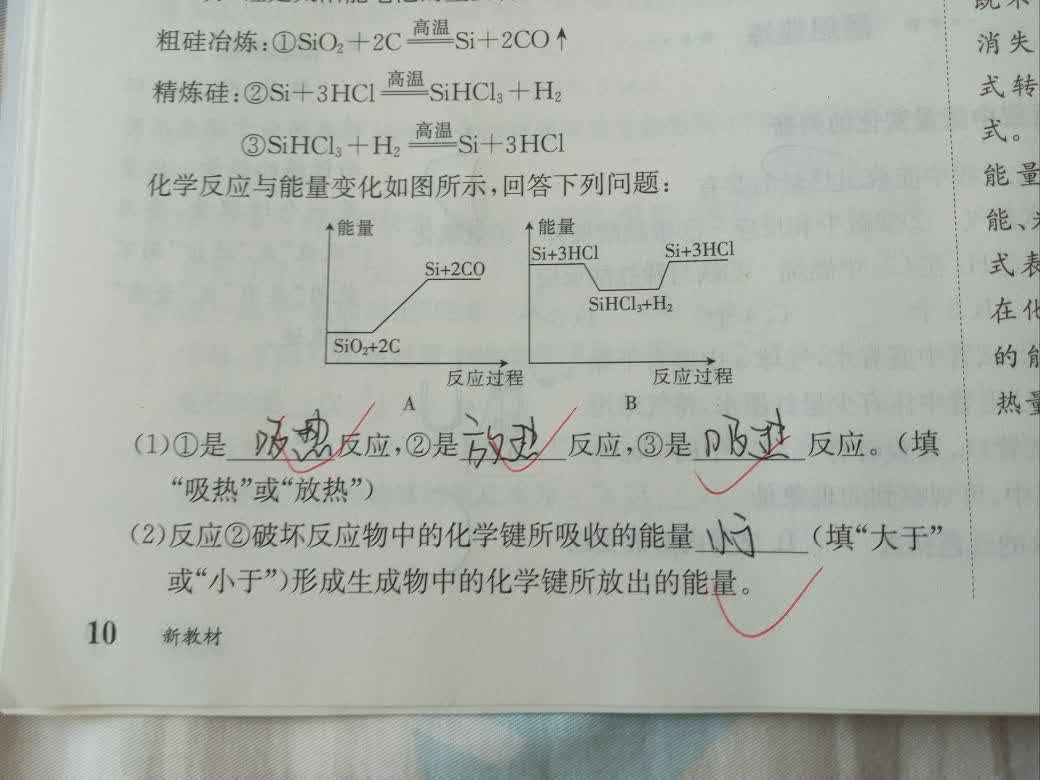 粗硅冶炼:①SiO₂+2C 高温 Si+2CO↑
精炼硅:②Si+3HCl 高温 SiHCl₃+H₂
③SiHCl₃+H₂ 高温 Si+3HCl
化学反应与能量变化如图所示,回答下列问题:
能量
Si+2CO
SiO₂+2C
反应过程
A
能量
Si+3HCl
Si+3HCl
SiHCl₃+H₂
反应过程
B
(1)①是 吸热 反应,②是 放热 反应,③是 吸热 反应。(填
“吸热”或“放热”)
(2)反应②破坏反应物中的化学键所吸收的能量 小于 (填“大于”
或“小于”)形成生成物中的化学键所放出的能量。
10 新教材
消失
式转
式。
能量
式表
在化
的能
热量